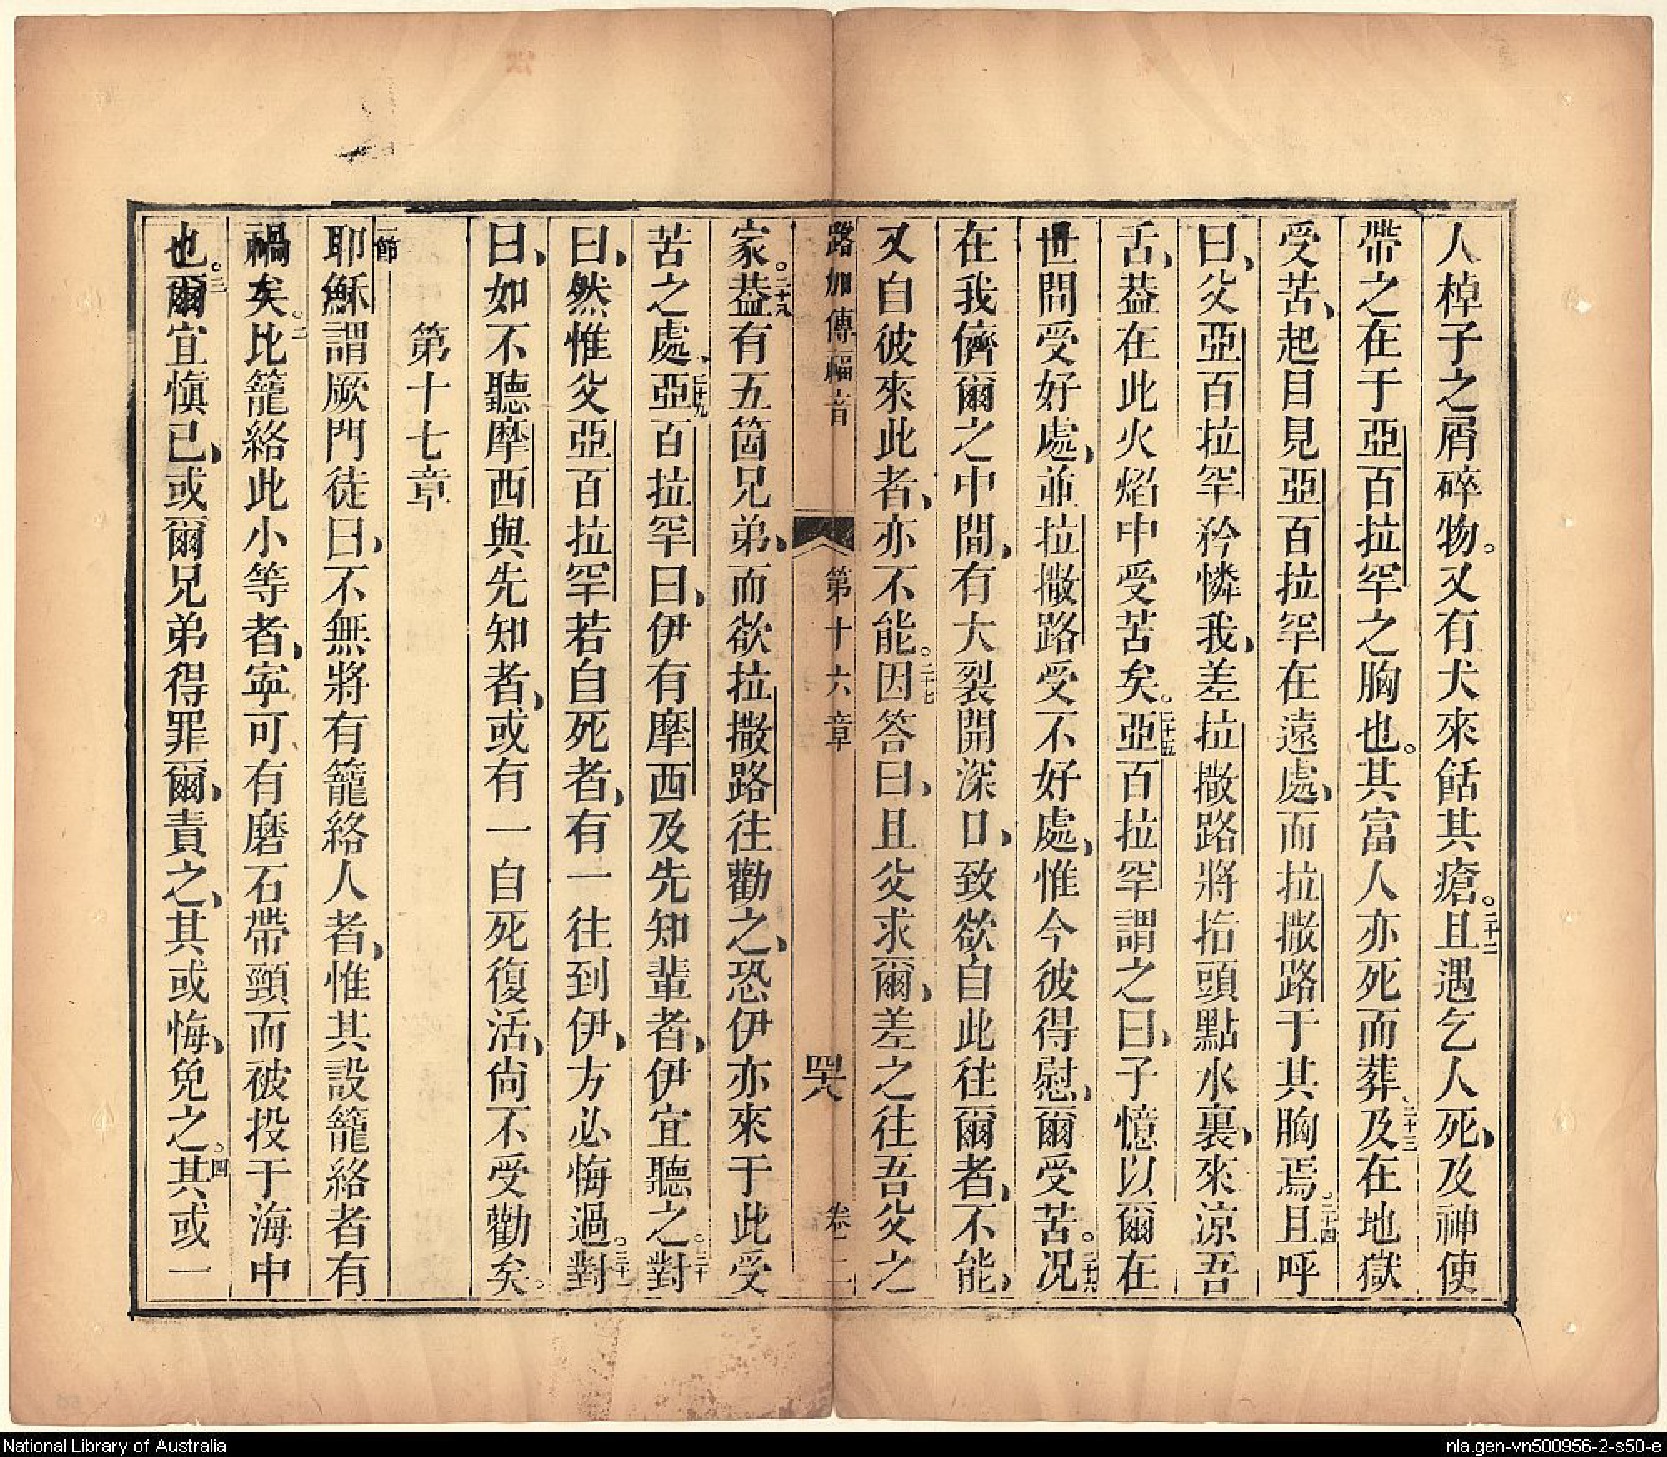 人棹子之屑碎物。又有犬來餂其瘡。二十二且遇乞人死、及神使
帶之在于亞百拉罕之胸也。其富人亦死而葬。二十三及在地獄
受苦、起目見亞百拉罕在遠處、而拉撒路于其胸焉。二十四且呼
曰、父亞百拉罕矜憐我、差拉撒路將指頭點水裏、來涼吾
舌、葢在此火焰中受苦矣。二十五亞百拉罕謂之曰、子憶以爾在
世間受好處、並拉撒路受不好處、惟今彼得慰、爾受苦。二十六况
在我儕爾之中間、有大裂開深口、致欲自此往爾者、不能、
又自彼來此者、亦不能。二十七因答曰、且父求爾、差之往吾父之
路加傳福音 第十六章 卷二
家。二十八葢有五箇兄弟、而欲拉撒路往勸之、恐伊亦來于此受
苦之處、二十九亞百拉罕曰、伊有摩西及先知輩者、伊宜聽之。三十對
曰、然惟父亞百拉罕若自死者、有一往到伊、方必悔過。三十一對
曰、如不聽摩西與先知者、或有一自死復活、尚不受勸矣。
第十七章
一節耶穌謂厥門徒曰、不無將有籠絡人者、惟其設籠絡者有
禍矣。二比籠絡此小等者、寧可有磨石帶頸而被投于海中
也。三爾宜慎已、或爾兄弟得罪爾、責之、其或悔、免之。四其或一
National Library of Australia
nla.gen-vn500956-2-s50-e